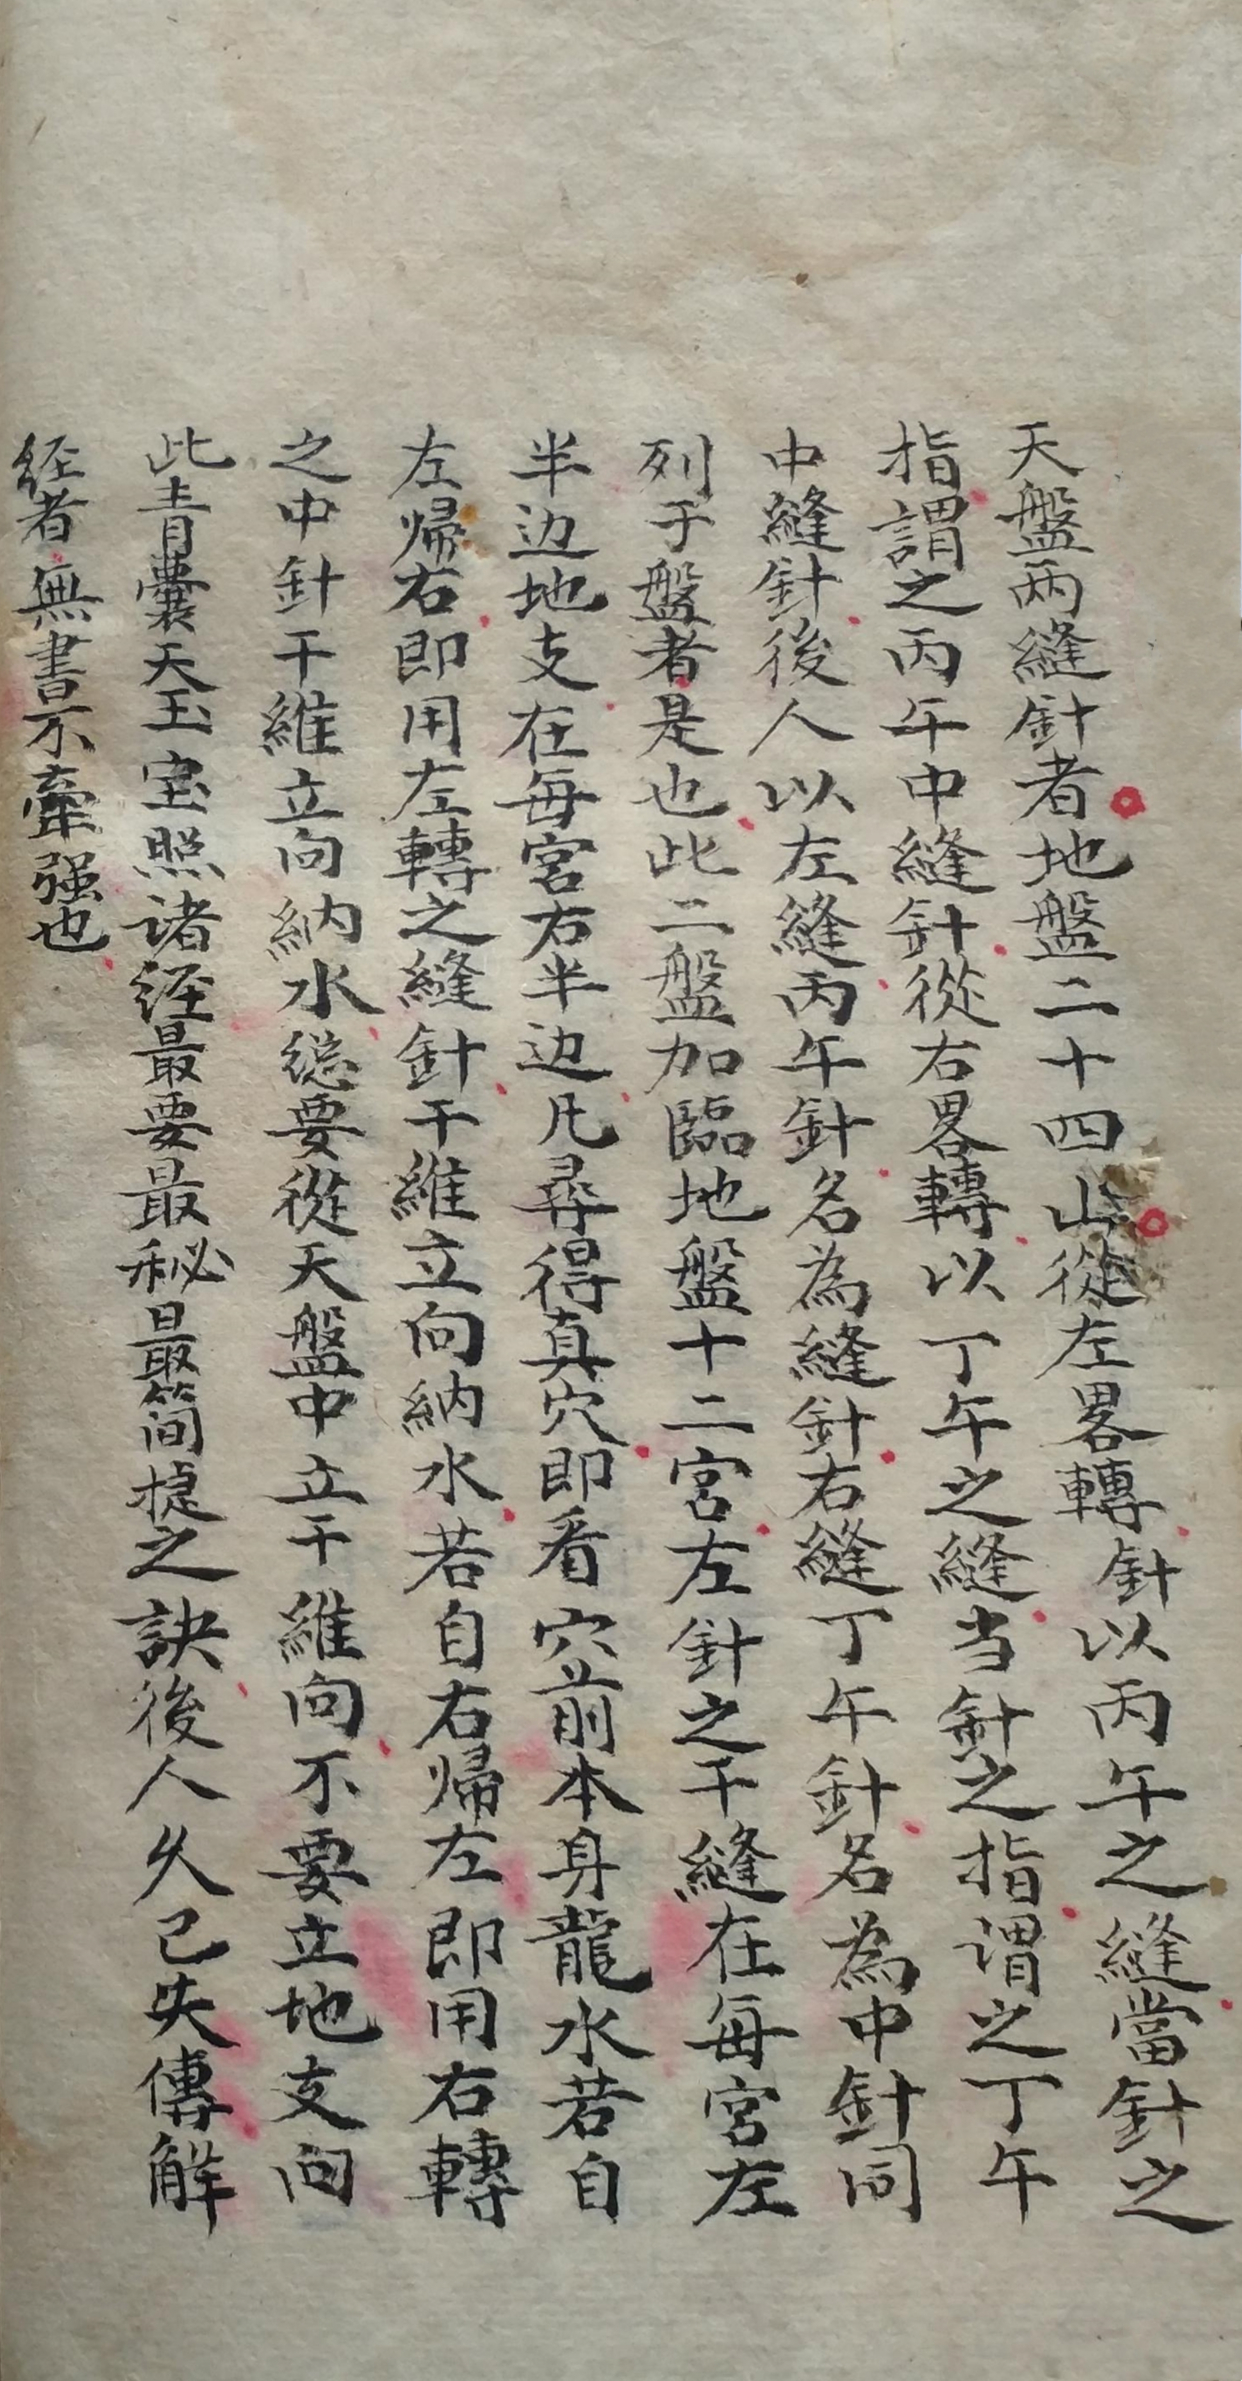 天盤兩縫針者地盤二十四山從左畧轉針以丙午之縫當針之
指謂之丙午中縫針從右畧轉以丁午之縫当針之指谓之丁午
中縫針後人以左縫丙午針名為縫針右縫丁午針名為中針同
列于盤者是也此二盤加臨地盤十二宮左針之干縫在每宮左
半边地支在每宮右半边凡尋得真穴即看穴前本身龍水若自
左帰右即用左轉之縫針干維立向納水若自右帰左即用右轉
之中針干維立向納水総要從天盤中立干維向不要立地支向
此青囊天玉宝照诸经最要最秘最简捷之訣後人久已失傳解
经者無書不牽强也